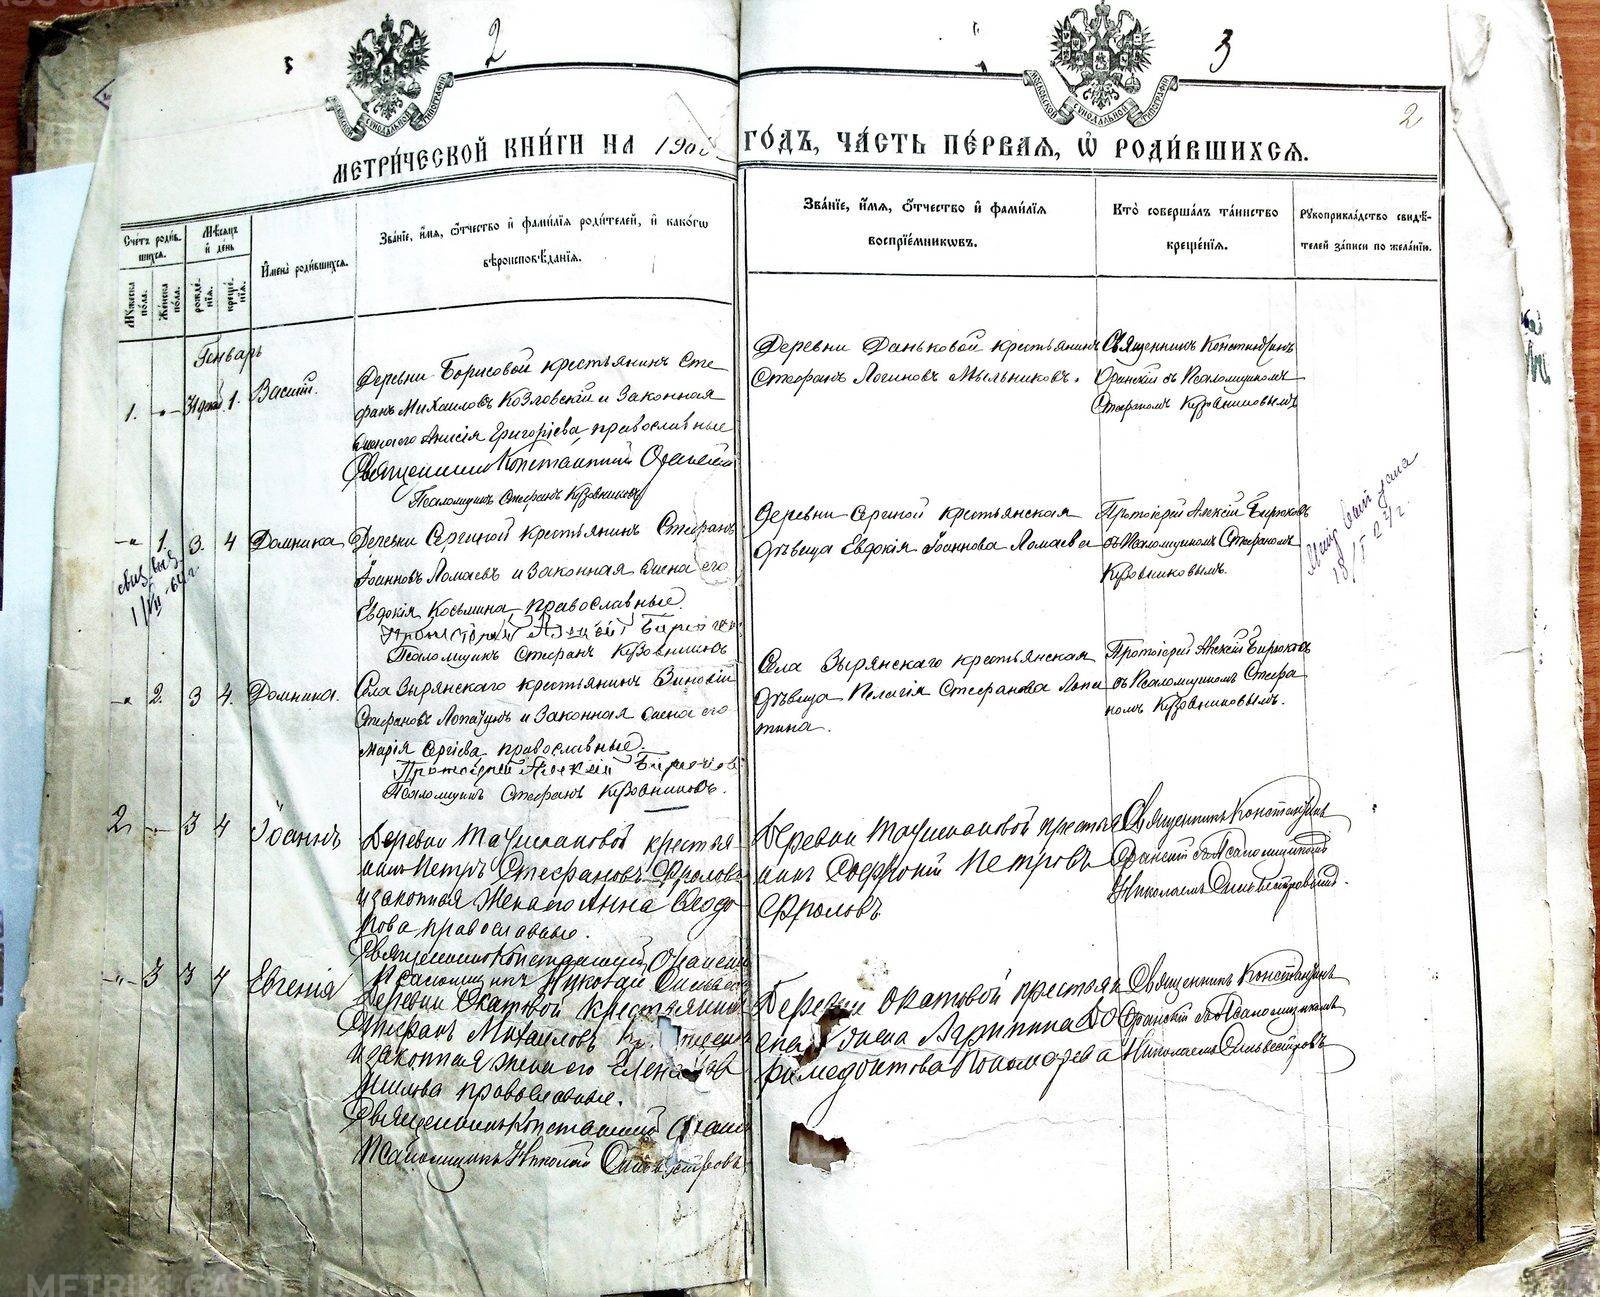 2
3
2
МОСКОВСКОЙ СѴНОДАЛЬНОЙ ТИПОГРАФІИ
МОСКОВСКОЙ СѴНОДАЛЬНОЙ ТИПОГРАФІИ
МЕТРИ́ЧЕСКОЙ КНИ́ГИ НА 190
ГО́ДЪ, ЧА́СТЬ ПЕ́РВАЯ, Ѡ РОДИ́ВШИХСЯ.
Счетъ роди́вшихся.
Мꙋ́жеска по́ла.
Же́нска по́ла.
Мѣ́сяцъ и́ де́нь
рожде́нїя.
креще́нїя.
И́мена̀ роди́вшихся.
Зва́нїе, и́мя, ѻ́тчество и́ фами́лїя роди́телей, и́ како́гѡ
вѣроисповѣ́данїя.
Зва́нїе, и́мя, ѻ́тчество и́ фами́лїя
воспрїе́мникѡвъ.
Кто̀ соверша́лъ та́инство
креще́нїя.
Рꙋкоприкла́дство свидѣ́-
телей за́писи по жела́нїю.
Генварь
1. -„- 31 дек. 1. Василій.
Деревни Борисовой крестьянинъ Сте
фанъ Михаиловъ Козловскій и законная
жена его Анисія Григоріева православные
Священникъ Константинъ
Псаломщикъ Стефанъ Кузовниковъ
Деревни Даньковой крестьянинъ
Стефанъ Логиновъ Мыльниковъ.
Священникъ Константинъ
съ Псаломщикомъ
Стефаномъ Кузовниковымъ
-„- 1. 3. 4 Домника
Деревни Сергиной крестьянинъ Стефанъ
Іоанновъ Ломаевъ и законная жена его
Евдокія Косьмина православные.
Протоіерей Алексій Бирюковъ
Псаломщикъ Стефанъ Кузовниковъ
Деревни Сергиной крестьянская
дѣвица Евдокія Іоаннова Ломаева
Протоіерей Алексій Бирюковъ
съ Псаломщикомъ Стефаномъ
Кузовниковымъ.
-„- 2. 3 4. Домника.
Села Зырянскаго крестьянинъ Зиновій
Стефановъ Лопатинъ и законная жена его
Марія Сергіева православные.
Протоіерей Алексій Бирюковъ
Псаломщикъ Стефанъ Кузовниковъ.
Села Зырянскаго крестьянская
дѣвица Пелагія Стефанова Лопа
тина.
Протоіерей Алексій Бирюковъ
съ Псаломщикомъ Стефа
номъ Кузовниковымъ.
2 -„- 3 4 Іоаннъ
Деревни крестья
нинъ Петръ Стефановъ Фроловъ
и законная жена его Анна Ѳеодо
рова православные.
Священникъ Константинъ
Псаломщикъ Николай
Деревни крестья
нинъ Софроній Петровъ
Фроловъ
Священникъ Константинъ
съ Псаломщикомъ
Николаемъ Сильвестровымъ.
-„- 3 3 4 Евгенія
Деревни Скатовой крестьянинъ
Стефанъ Михаиловъ
и законная жена его Елена
православные.
Священникъ Константинъ
Псаломщикъ Николай Сильвестровъ
Деревни Скатовой крестьян
жена Агрипина До
римедонтова Пономарева
Священникъ Константинъ
съ Псаломщикомъ
Николаемъ Сильвестровъ